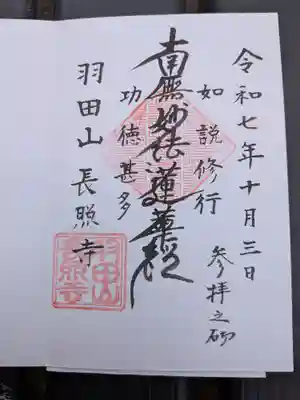 令和七年十月三日
参拝之砌
如説修行
南無妙法蓮華経
功徳甚多
羽田山長照寺
羽田山
長照寺